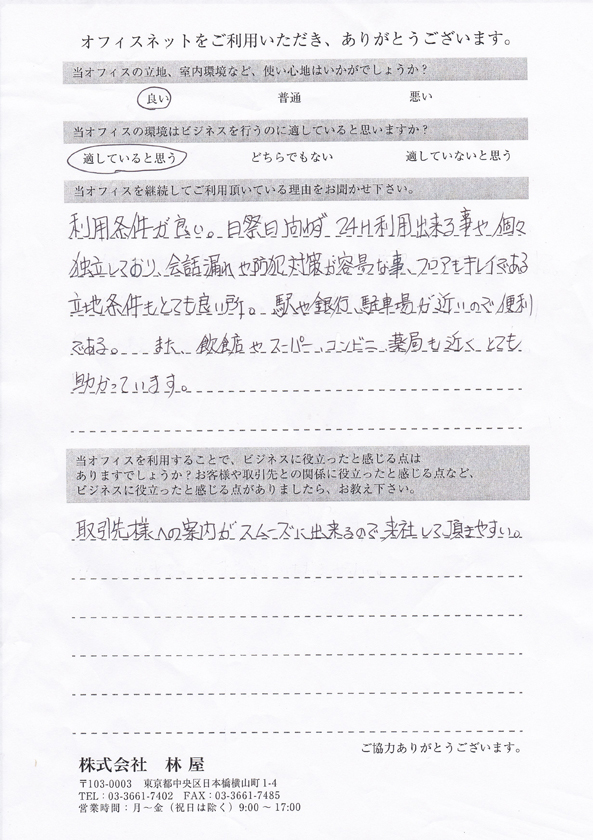 オフィスネットをご利用いただき、ありがとうございます。
当オフィスの立地、室内環境など、使い心地はいかがでしょうか？
良い　普通　悪い
当オフィスの環境はビジネスを行うのに適していると思いますか？
適していると思う　どちらでもない　適していないと思う
当オフィスを継続してご利用頂いている理由をお聞かせ下さい。
利用条件が良い。日祭日問わず、24H利用出来る事や個々
独立しており、会話漏れや防犯対策が容易な事、フロアもキレイである
立地条件もとても良い所。駅や銀行、駐車場が近いので便利
である。また、飲食店やスーパー、コンビニ、薬局も近く、とても
助かっています。
当オフィスを利用することで、ビジネスに役立ったと感じる点は
ありますでしょうか？お客様や取引先との関係に役立ったと感じる点など、
ビジネスに役立ったと感じる点がありましたら、お教え下さい。
取引先様への案内がスムーズに出来るので来社して頂きやすい。
ご協力ありがとうございます。
株式会社　林屋
〒103-0003　東京都中央区日本橋横山町1-4
TEL：03-3661-7402　FAX：03-3661-7485
営業時間：月～金（祝日は除く）9:00～17:00